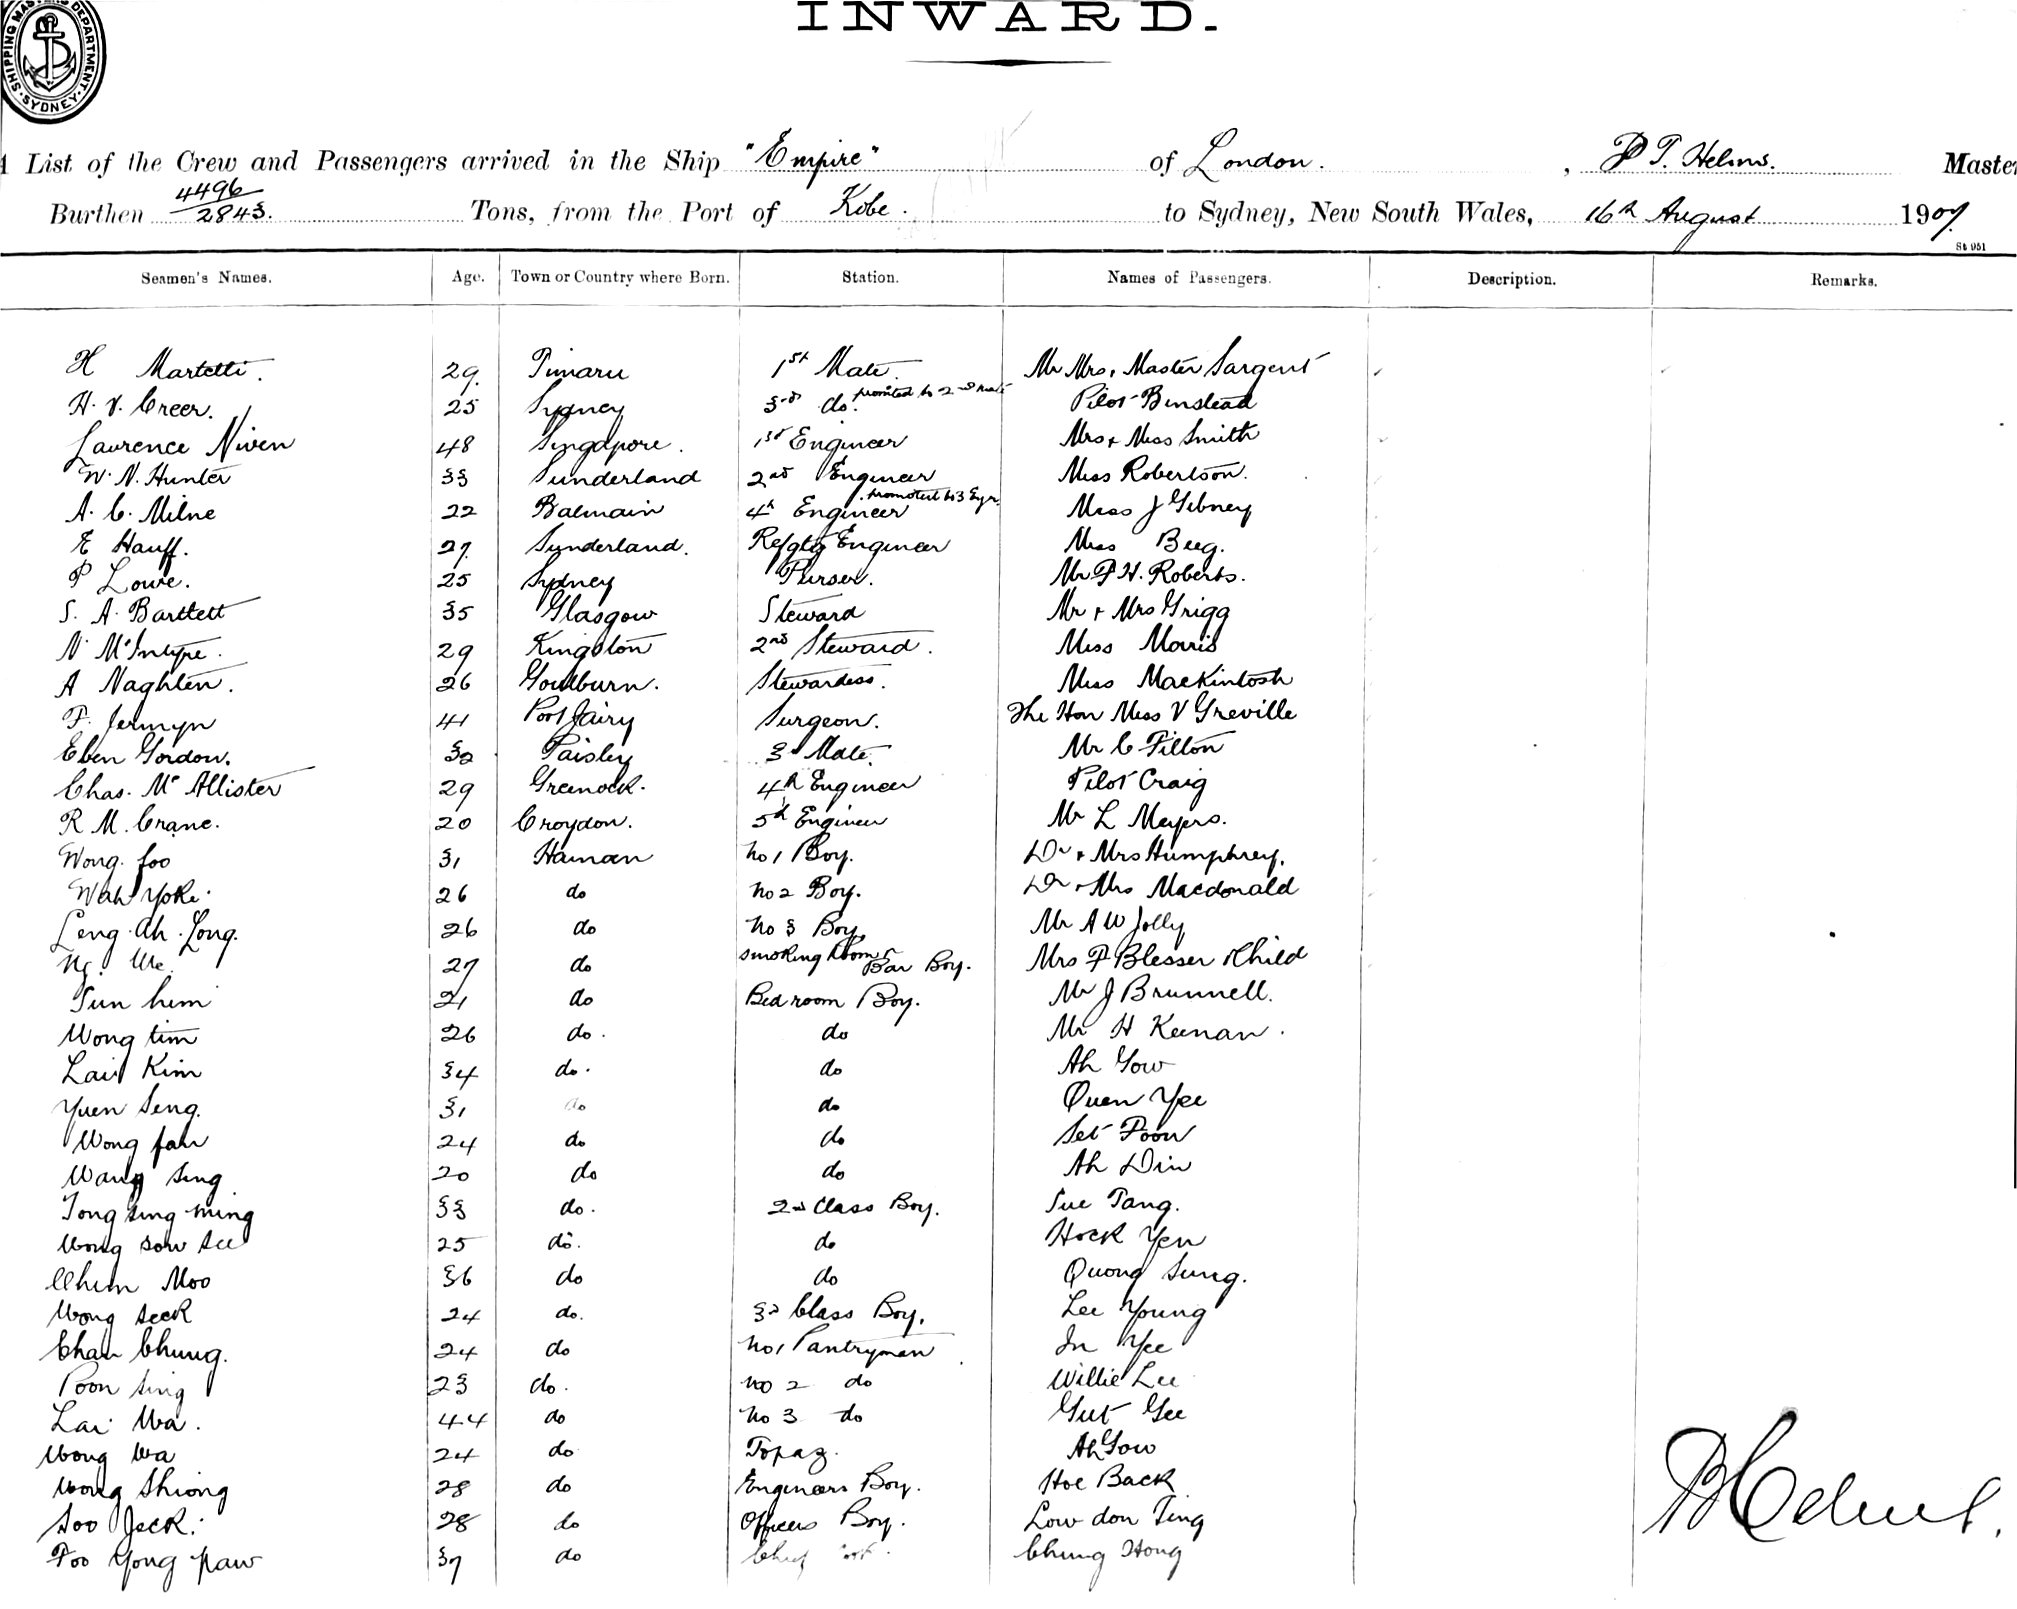 INWARD.
SHIPPING MASTERS DEPARTMENT. SYDNEY.
List of the Crew and Passengers arrived in the Ship "Empire" of London. , P T. Helms. Master
Burthen 4496/2843. Tons, from the Port of Kobe. to Sydney, New South Wales, 16th August 1907
St 951
Seamen's Names. Age. Town or Country where Born. Station. Names of Passengers. Description. Remarks.
H Martetti. 29. Timaru 1st Mate. Mr Mrs, Master Sargent
H. V. Creer. 25 Sydney 3rd do. promoted to 2nd mate Pilot Binstead
Laurence Niven 48 Singapore. 1st Engineer Mrs + Miss Smith
W. N. Hunter 33 Sunderland 2nd Engineer Miss Robertson.
A. C. Milne 22 Balmain 4th Engineer promoted to 3 Egr. Miss J Gibney
E Hauff. 27. Sunderland. Refgtg Engineer Miss Beeg.
P Lowe. 25 Sydney Purser. Mr P H. Roberts.
S. A. Bartlett 35 Glasgow Steward Mr + Mrs Grigg
N. McIntyre. 29 Kingston 2nd Steward. Miss Morris
A Naghten. 26 Goulburn. Stewardess. Miss Mackintosh
F. Jermyn 41 Port Fairy Surgeon. The Hon Miss V Greville
Eben Gordon. 32 Paisley 3rd Mate. Mr C Filton
Chas. McAllister 29 Greenock. 4th Engineer Pilot Craig
R M. Crane. 20 Croydon. 5th Engineer Mr L Meyers.
Wong. foo 31 Hainan No 1 Boy. Dr + Mrs Humphrey.
Wah Yoke. 26 do No 2 Boy. Dr + Mrs Macdonald
Leng. Ah. Long. 26 do No 3 Boy. Mr A W Jolly
Ng. We. 27 do Smoking Room + Bar Boy. Mrs F Blesser + Child
Sun him 21 do Bedroom Boy. Mr J Brunnell.
Wong tim 26 do. do Mr H Keenan.
Lair Kim 34 do. do Ah Gow
Yuen Seng. 31 do do Quen Yee
Wong fan 24 do do Set Poon
Wang Sing 20 do do Ah Din
Tong sing ming 33 do. 2nd Class Boy. Sue Tang.
Wong sow see 25 do. do Hock Yen
Chun Moo 36 do do Quong Sung.
Wong seek 24 do. 3rd Class Boy. Lee Young
Chan Chung. 24 do No 1 Pantryman In Yee
Poon sing 23 do. No 2 do Willie Lee
Lai Wa. 44 do No 3 do Gut Gee
Wong Wa 24 do Topaz. Ah Gow
Wong Shiong 28 do Engineers Boy. Hoe Back
Soo Jeck. 28 do Officers Boy. Low don Ting
Foo Yong paw 37 do Chief Cook. Chung Hong
P T Helms.